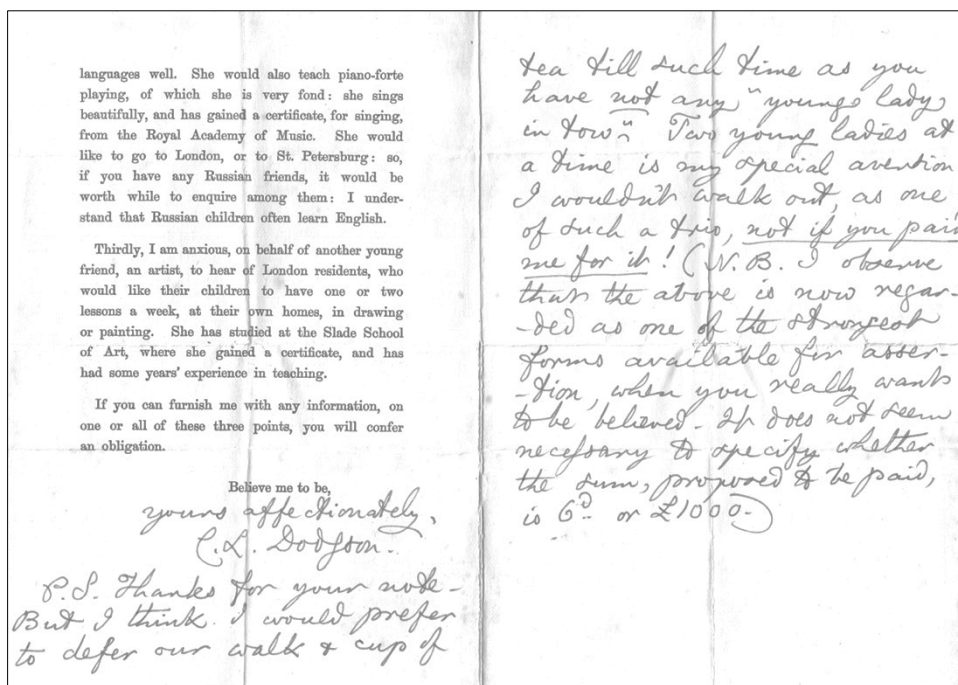 languages well. She would also teach piano-forte
playing, of which she is very fond: she sings
beautifully, and has gained a certificate, for singing,
from the Royal Academy of Music. She would
like to go to London, or to St. Petersburg: so,
if you have any Russian friends, it would be
worth while to enquire among them: I under-
stand that Russian children often learn English.
Thirdly, I am anxious, on behalf of another young
friend, an artist, to hear of London residents, who
would like their children to have one or two
lessons a week, at their own homes, in drawing
or painting. She has studied at the Slade School
of Art, where she gained a certificate, and has
had some years' experience in teaching.
If you can furnish me with any information, on
one or all of these three points, you will confer
an obligation.
Believe me to be,
yours affectionately,
C. L. Dodgson.
P.S. Thanks for your note-
But I think I would prefer
to defer our walk & cup of
tea till such time as you
have not any "young lady
in tow". Two young ladies at
a time is my special aversion
I wouldn't walk out, as one
of such a trio, not if you paid
me for it! (N.B. I observe
that the above is now regar-
-ded as one of the strongest
forms available for asser-
-tion, when you really want
to be believed. It does not seem
necessary to specify whether
the sum, proposed to be paid,
is 6d. or £1000.)